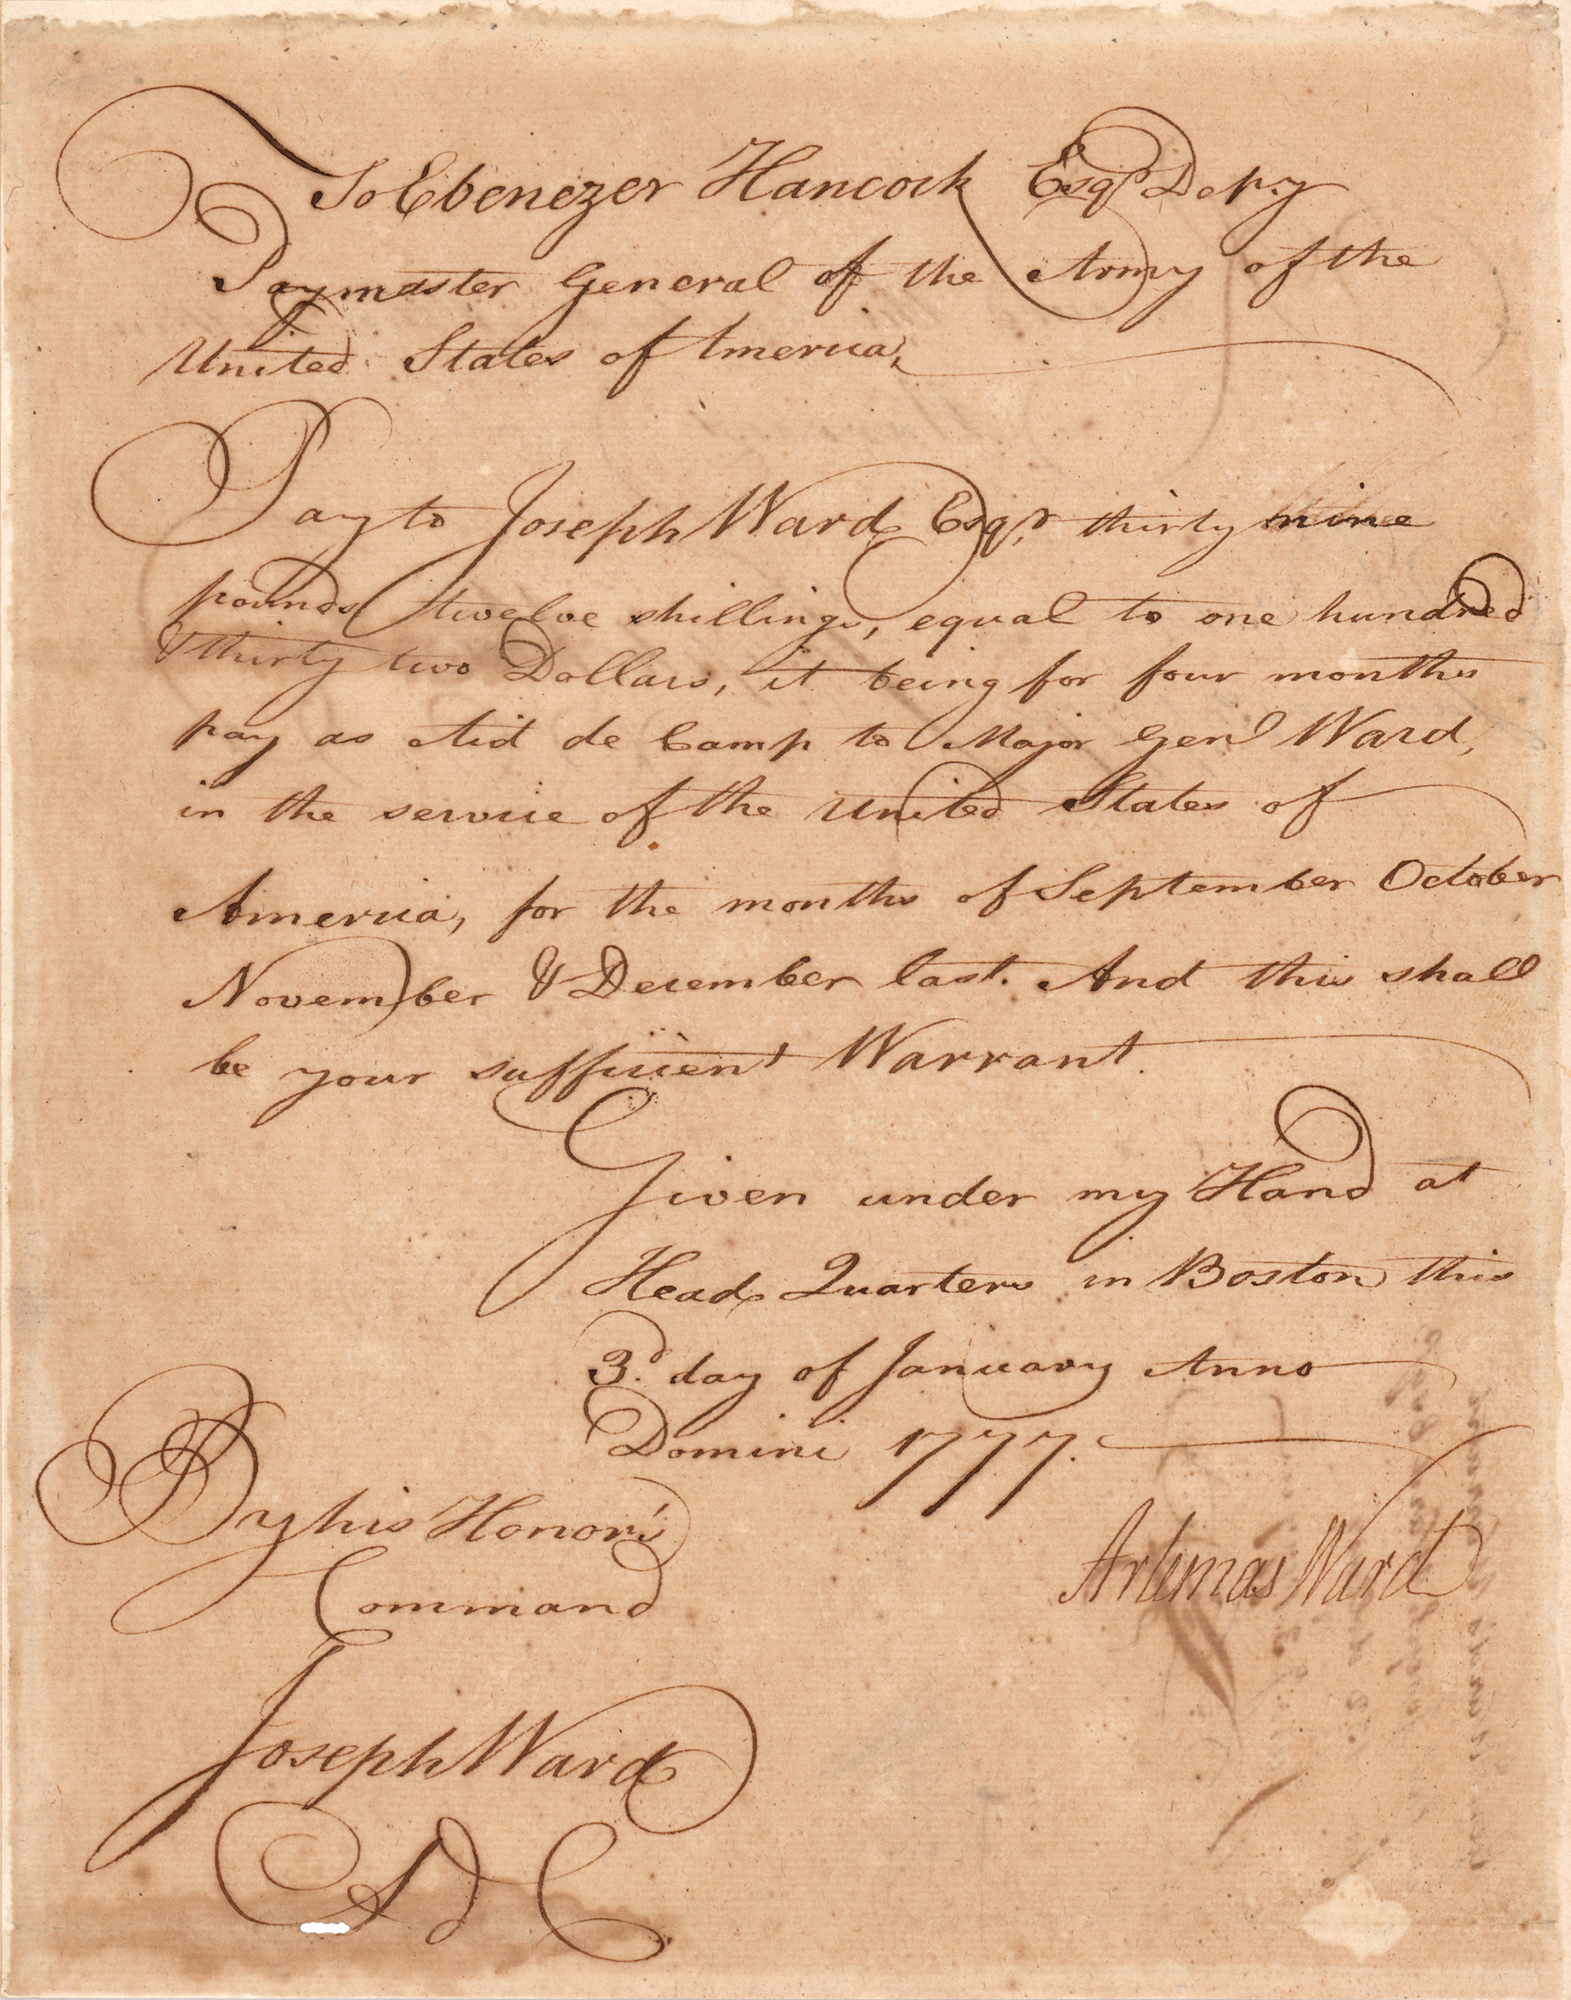 To Ebenezer Hancock Esqr. Depy
Paymaster General of the Army of the
United States of America,
Pay to Joseph Ward Esqr. thirty nine
pounds twelve shillings, equal to one hundred
& thirty two Dollars, it being for four months
pay as Aid de Camp to Major Genl Ward,
in the service of the United States of
America, for the months of September October
November & December last. And this shall
be your sufficient Warrant.
Given under my Hand at
Head Quarters in Boston this
3d. day of January Anno
Domini 1777.
By his Honor's
Command
Artemas Ward
Joseph Ward
ADC